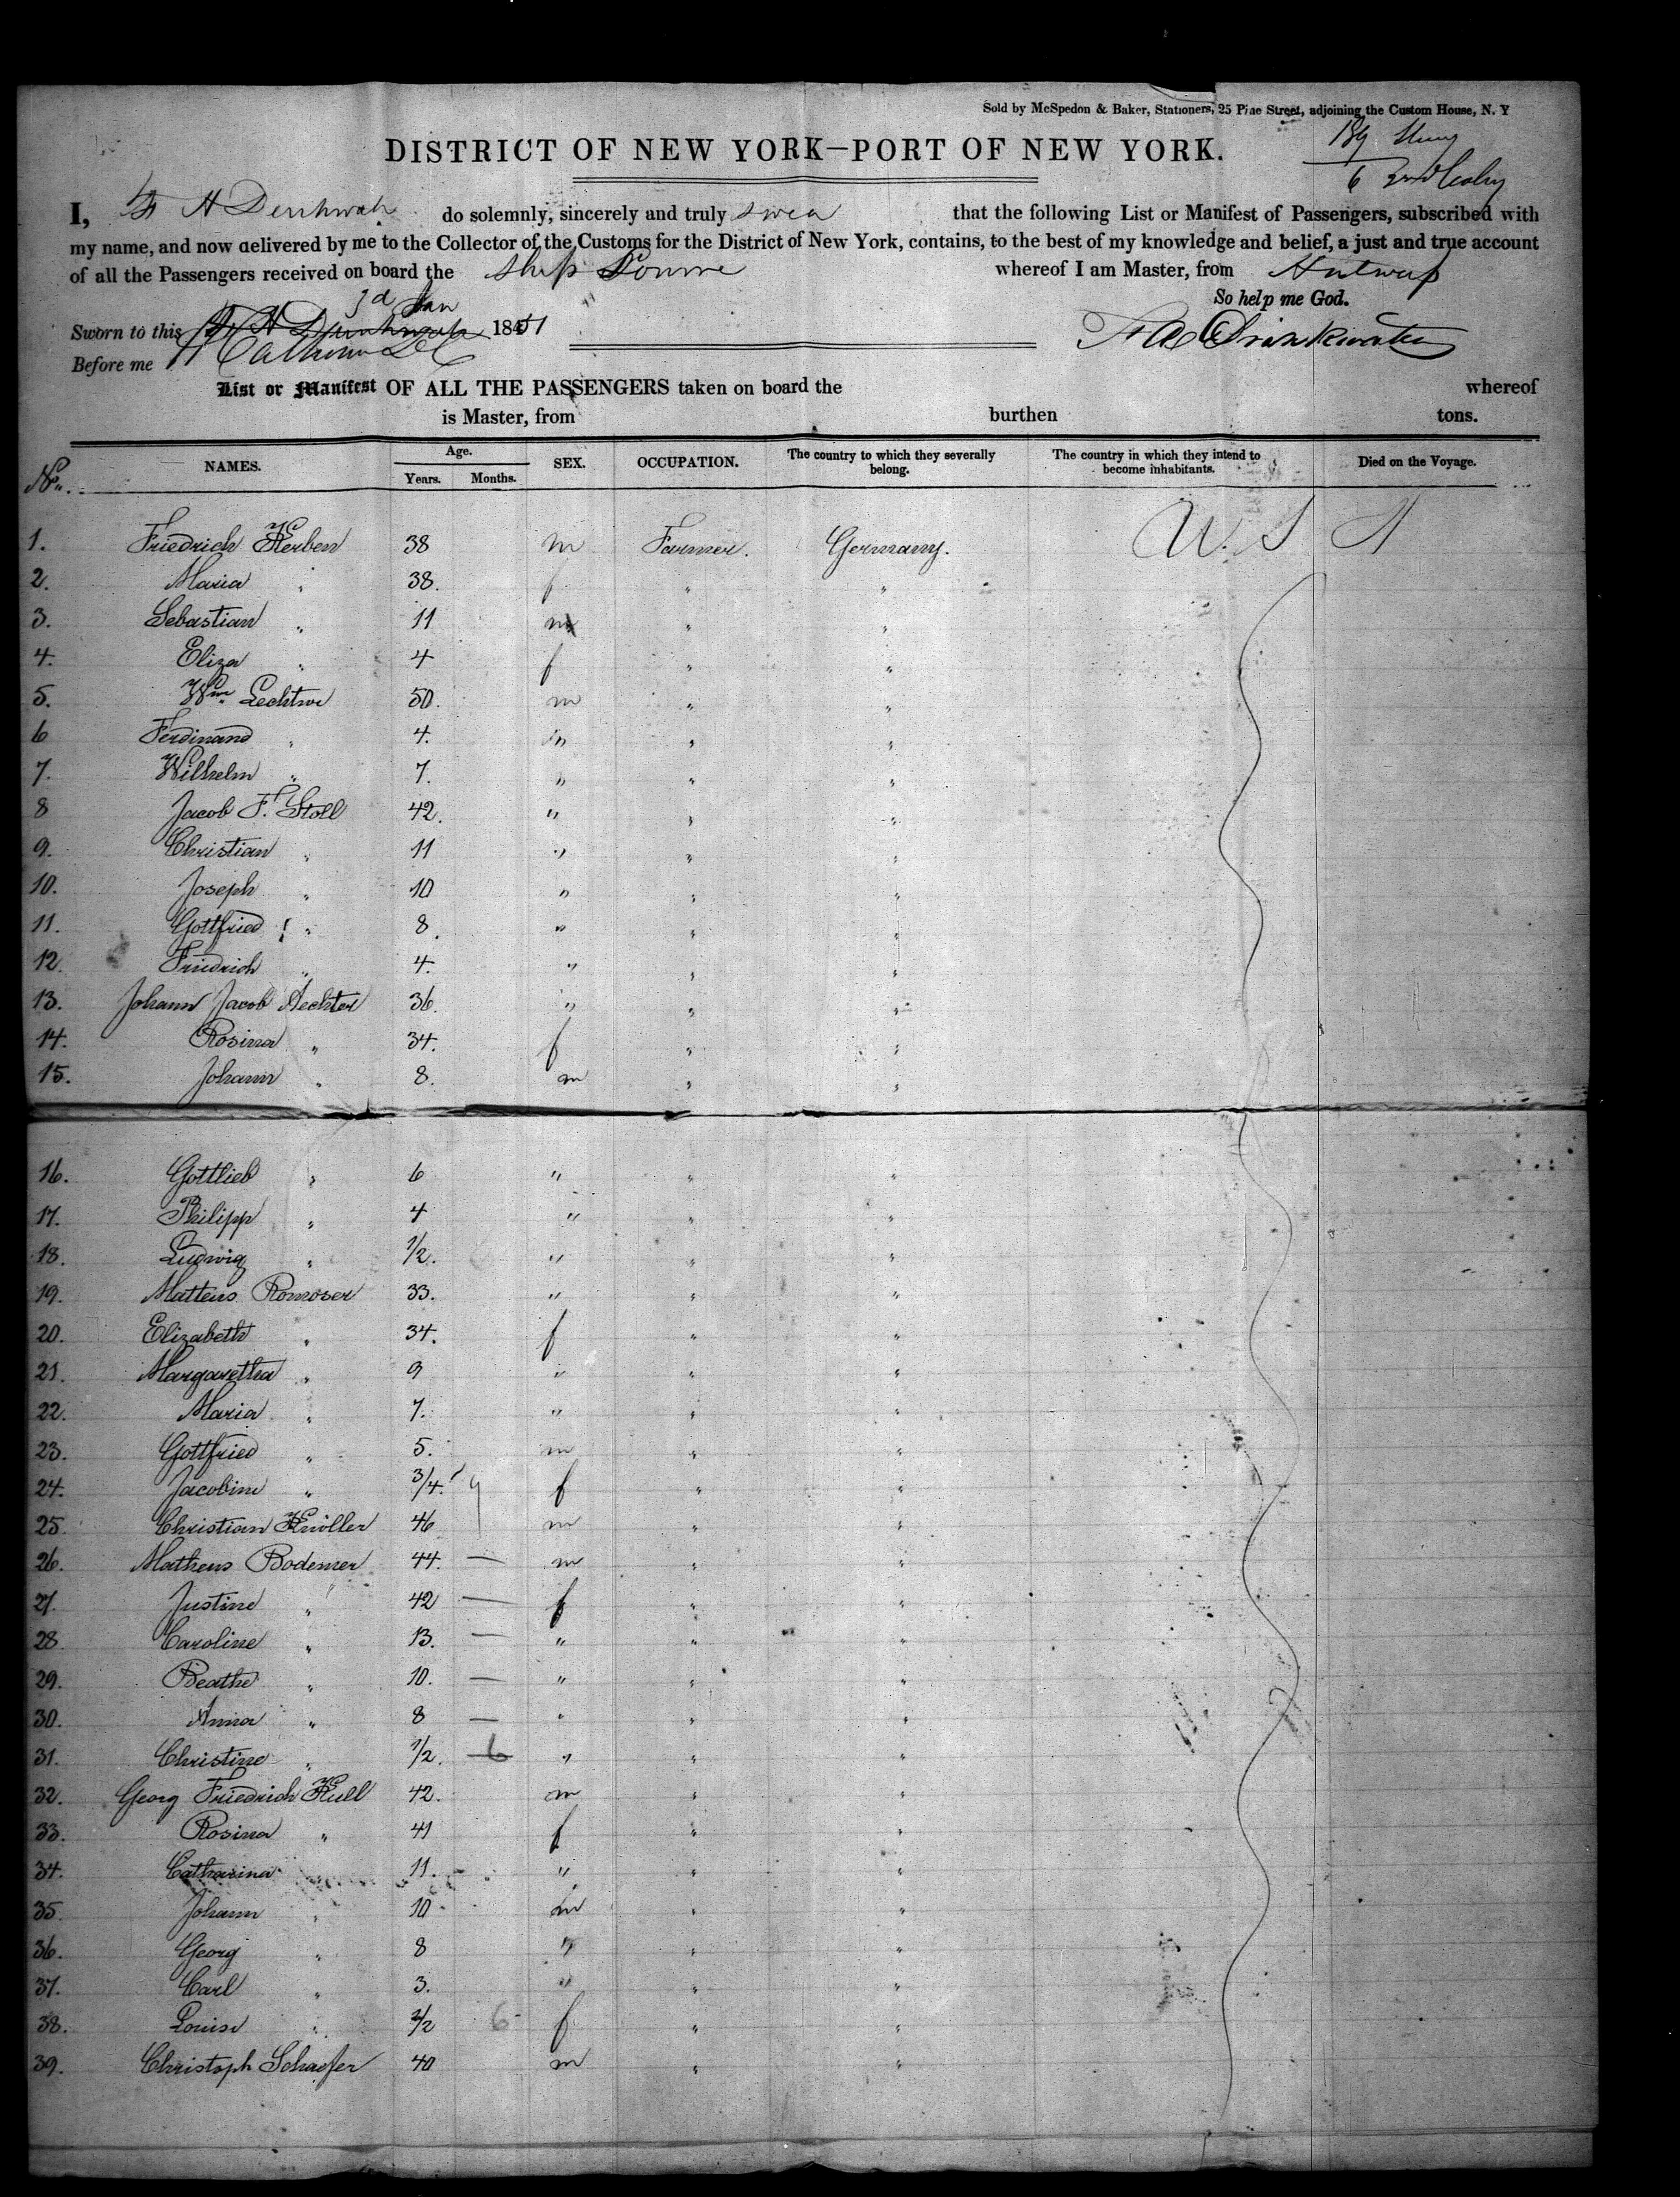 Sold by McSpedon & Baker, Stationers, 25 Pine Street, adjoining the Custom House, N. Y
DISTRICT OF NEW YORK—PORT OF NEW YORK.
6 2nd
I, H do solemnly, sincerely and truly swear that the following List or Manifest of Passengers, subscribed with
my name, and now delivered by me to the Collector of the Customs for the District of New York, contains, to the best of my knowledge and belief, a just and true account
of all the Passengers received on board the Ship whereof I am Master, from Antwerp
So help me God.
Sworn to this 3d Jan 1851
Drinkwater
Before me
List or Manifest OF ALL THE PASSENGERS taken on board the whereof
is Master, from burthen tons.
No. NAMES. Age. Years. Months. SEX. OCCUPATION. The country to which they severally belong. The country in which they intend to become inhabitants. Died on the Voyage.
1. Friedrich Kerben 38 m Farmer. Germany. U. S A
2. Maria " 38. f " "
3. Sebastian " 11 m " "
4. Eliza " 4 f " "
5. Wm. 50. m " "
6 Ferdinand " 4. m " "
7. Wilhelm " 7. " " "
8 Jacob F. Stoll 42. " " "
9. Christian " 11 " " "
10. Joseph " 10 " " "
11. Gottfried " 8. " " "
12. Friedrich " 4. " " "
13. Johann Jacob Aechter 36. " " "
14. Rosina " 34. f " "
15. Johann " 8. m " "
16. Gottlieb " 6 " " "
17. Philipp " 4 " " "
18. Ludwig " 1/2. " " "
19. Matteus Romoser 33. " " "
20. Elizabeth " 34. f " "
21. Margaretha " 9 " " "
22. Maria " 7. " " "
23. Gottfried " 5. m " "
24. Jacobine " 3/4. 9 f " "
25. Christian Knöller 46 m " "
26. Matheus Bodemer 44. — m " "
27. Justine " 42 — f " "
28 Caroline " 13. — " " "
29. Beathe " 10. — " " "
30. Anna " 8 — " " "
31. Christine " 1/2. 6 " " "
32. Georg Friedrich Kull 42. m " "
33. Rosina " 41 f " "
34. Catharina " 11. " " "
35. Johann " 10 m " "
36. Georg " 8 " " "
37. Carl " 3. " " "
38. Louise " 1/2 6 f " "
39. Christoph Schaefer 40 m " "